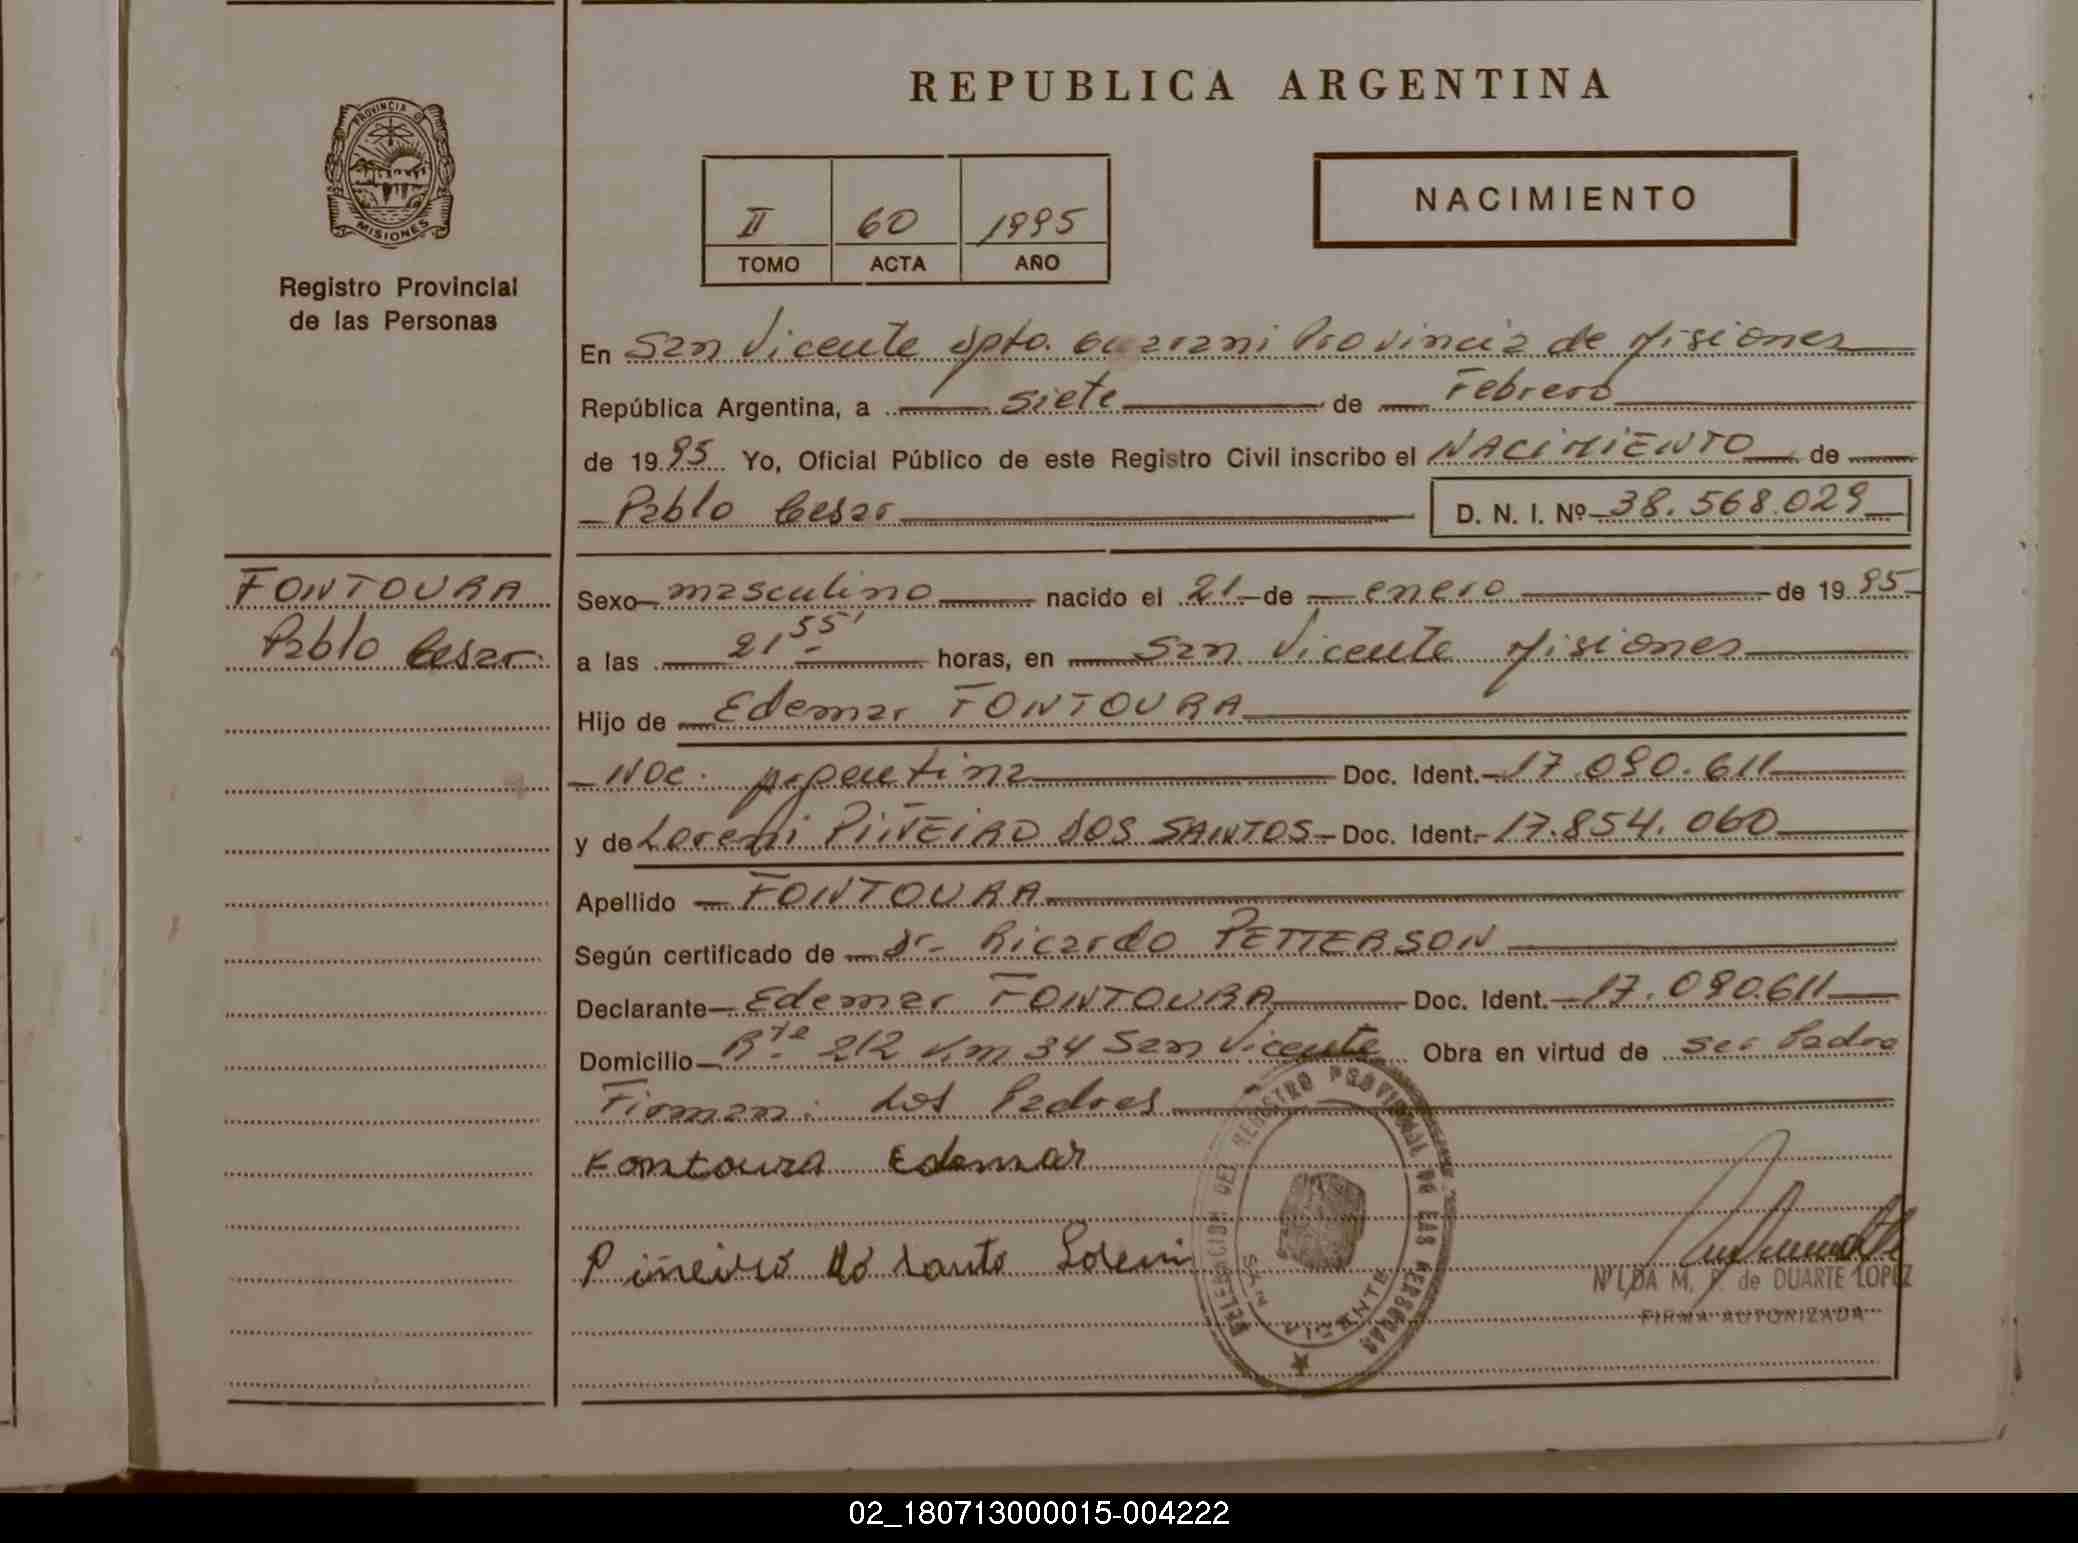 REPUBLICA ARGENTINA
PROVINCIA DE
MISIONES
Registro Provincial
de las Personas
II 60 1995
TOMO ACTA AÑO
NACIMIENTO
En San Vicente dpto. Guarani Provincia de Misiones
República Argentina, a siete de Febrero
de 1995 Yo, Oficial Público de este Registro Civil inscribo el NACIMIENTO de
Pablo Cesar D. N. I. Nº 38.568.029
FONTOURA
Pablo Cesar
Sexo masculino nacido el 21 de enero de 1995
a las 21 55' horas, en San Vicente Misiones
Hijo de Edemar FONTOURA
Nac. Argentina Doc. Ident. 17.090.611
y de Loreni PIÑEIRO DOS SANTOS Doc. Ident. 17.854.060
Apellido FONTOURA
Según certificado de Dr. Ricardo PETTERSON
Declarante Edemar FONTOURA Doc. Ident. 17.090.611
Domicilio Rta 212 Km 34 San Vicente Obra en virtud de ser Padre
Firman: Los Padres
Fontoura Edemar
Piñeiro do santo Loreni
DELEGACION DEL REGISTRO PROVINCIAL DE LAS PERSONAS
SAN VICENTE
NILDA M. F. de DUARTE LOPEZ
FIRMA AUTORIZADA
02_180713000015-004222